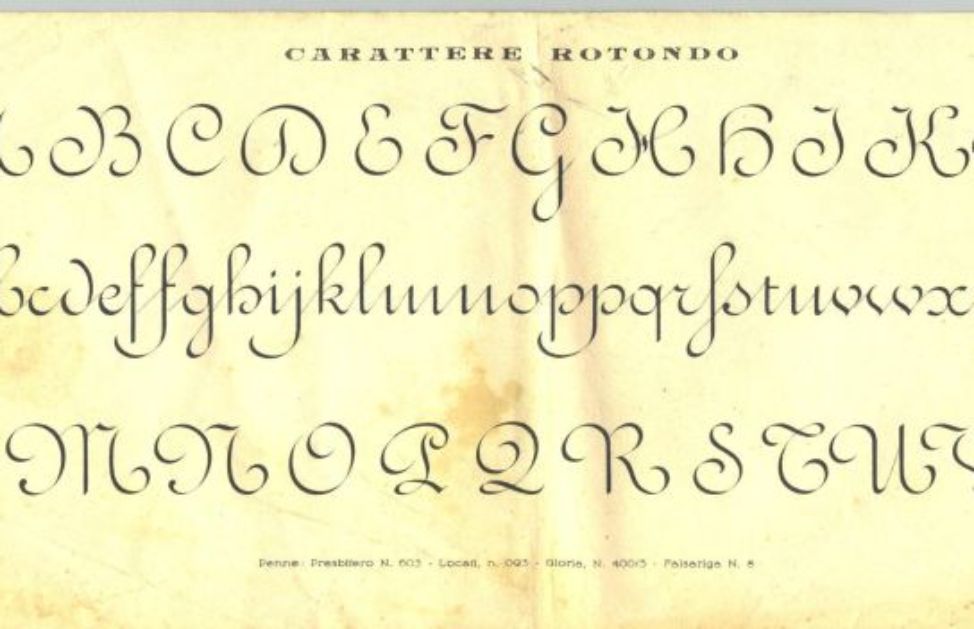 CARATTERE ROTONDO
A B C D E F G H H I K
bcdeffghijklmnoppqrſstuvwx
M N O P Q R S T U V
Penne: Presbitero N. 603 - Locati, n. 093 - Gloria, N. 400/3 - Falsariga N. 8